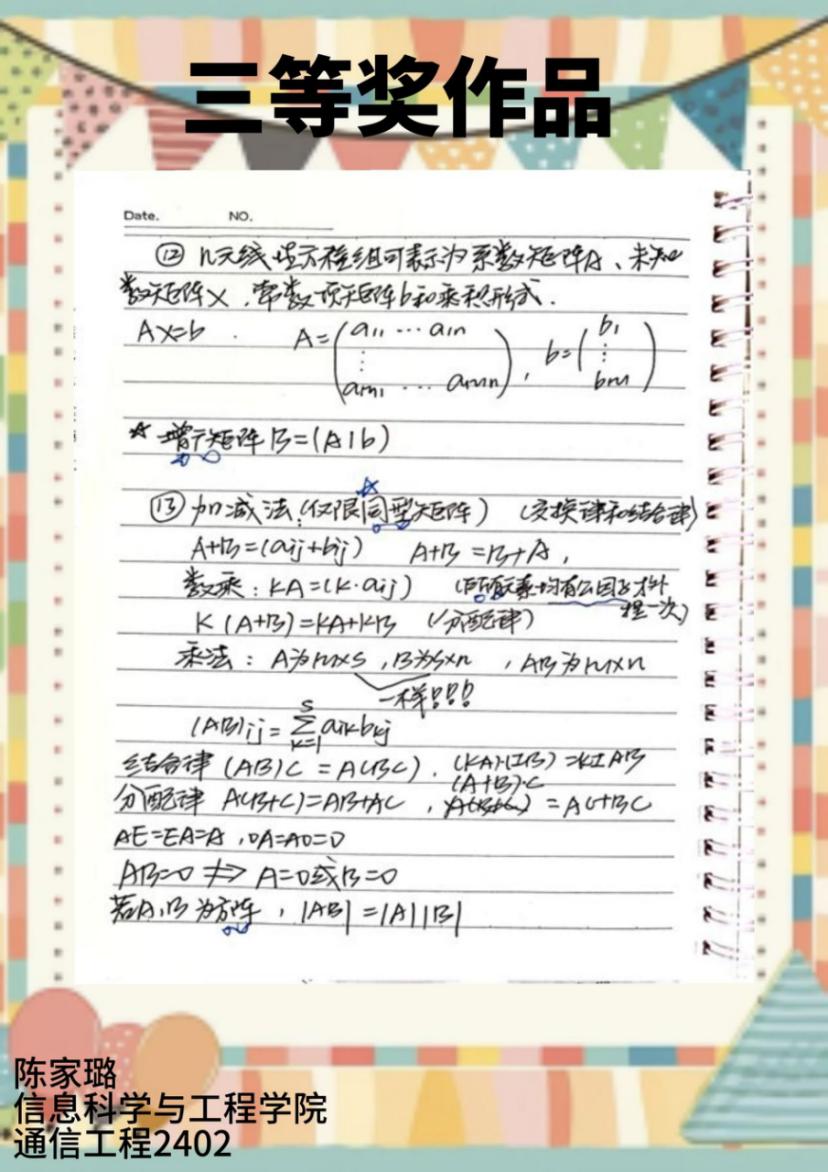 三等奖作品
Date. NO.
⑫ n元线性方程组可表示为系数矩阵A、未知
数矩阵X,常数项矩阵b和乘积形式.
AX=b. A=(a11 ⋯ a1n ⋮ am1 ⋯ amn), b=(b1 ⋮ bm)
☆增广矩阵B=(A|b)
⑬ 加减法:(仅限同型矩阵) (交换律和结合律)
A+B=(aij+bij) A+B=B+A,
数乘:KA=(K·aij) (所有元素均有公因子才外提一次)
K(A+B)=KA+KB (分配律)
乘法:A为m×s,B为s×n,AB为m×n
一样!!!
(AB)ij=∑_{k=1}^{s} aikbkj
结合律 (AB)C=A(BC).(KA)·(IB)=KIAB
分配律 A(B+C)=AB+AC,(A+B)·C=AC+BC
AE=EA=A,0A=A0=0
AB=0 ⇏ A=0或B=0
若A,B为方阵,|AB|=|A||B|
陈家璐
信息科学与工程学院
通信工程2402